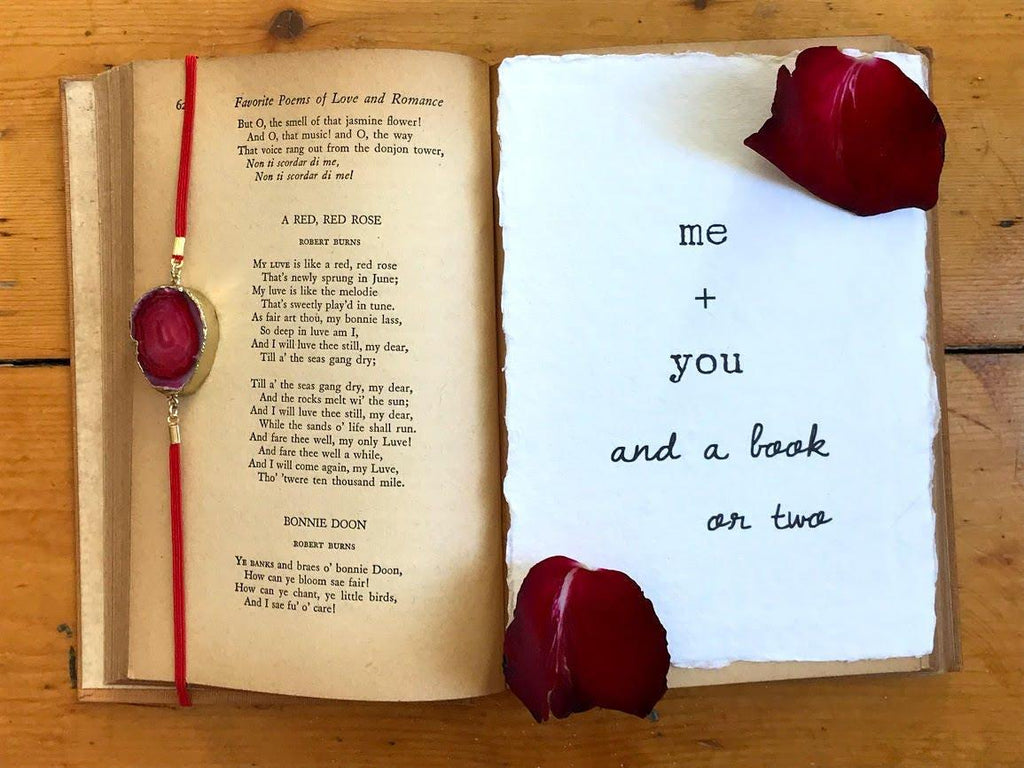 62 Favorite Poems of Love and Romance
But O, the smell of that jasmine flower!
And O, that music! and O, the way
That voice rang out from the donjon tower,
Non ti scordar di me,
Non ti scordar di me!
A RED, RED ROSE
ROBERT BURNS
MY LUVE is like a red, red rose
That's newly sprung in June;
My luve is like the melodie
That's sweetly play'd in tune.
As fair art thou, my bonnie lass,
So deep in luve am I,
And I will luve thee still, my dear,
Till a' the seas gang dry;
Till a' the seas gang dry, my dear,
And the rocks melt wi' the sun;
And I will luve thee still, my dear,
While the sands o' life shall run.
And fare thee well, my only Luve!
And fare thee well a while,
And I will come again, my Luve,
Tho' 'twere ten thousand mile.
BONNIE DOON
ROBERT BURNS
YE BANKS and braes o' bonnie Doon,
How can ye bloom sae fair!
How can ye chant, ye little birds,
And I sae fu' o' care!
me
+
you
and a book
or two